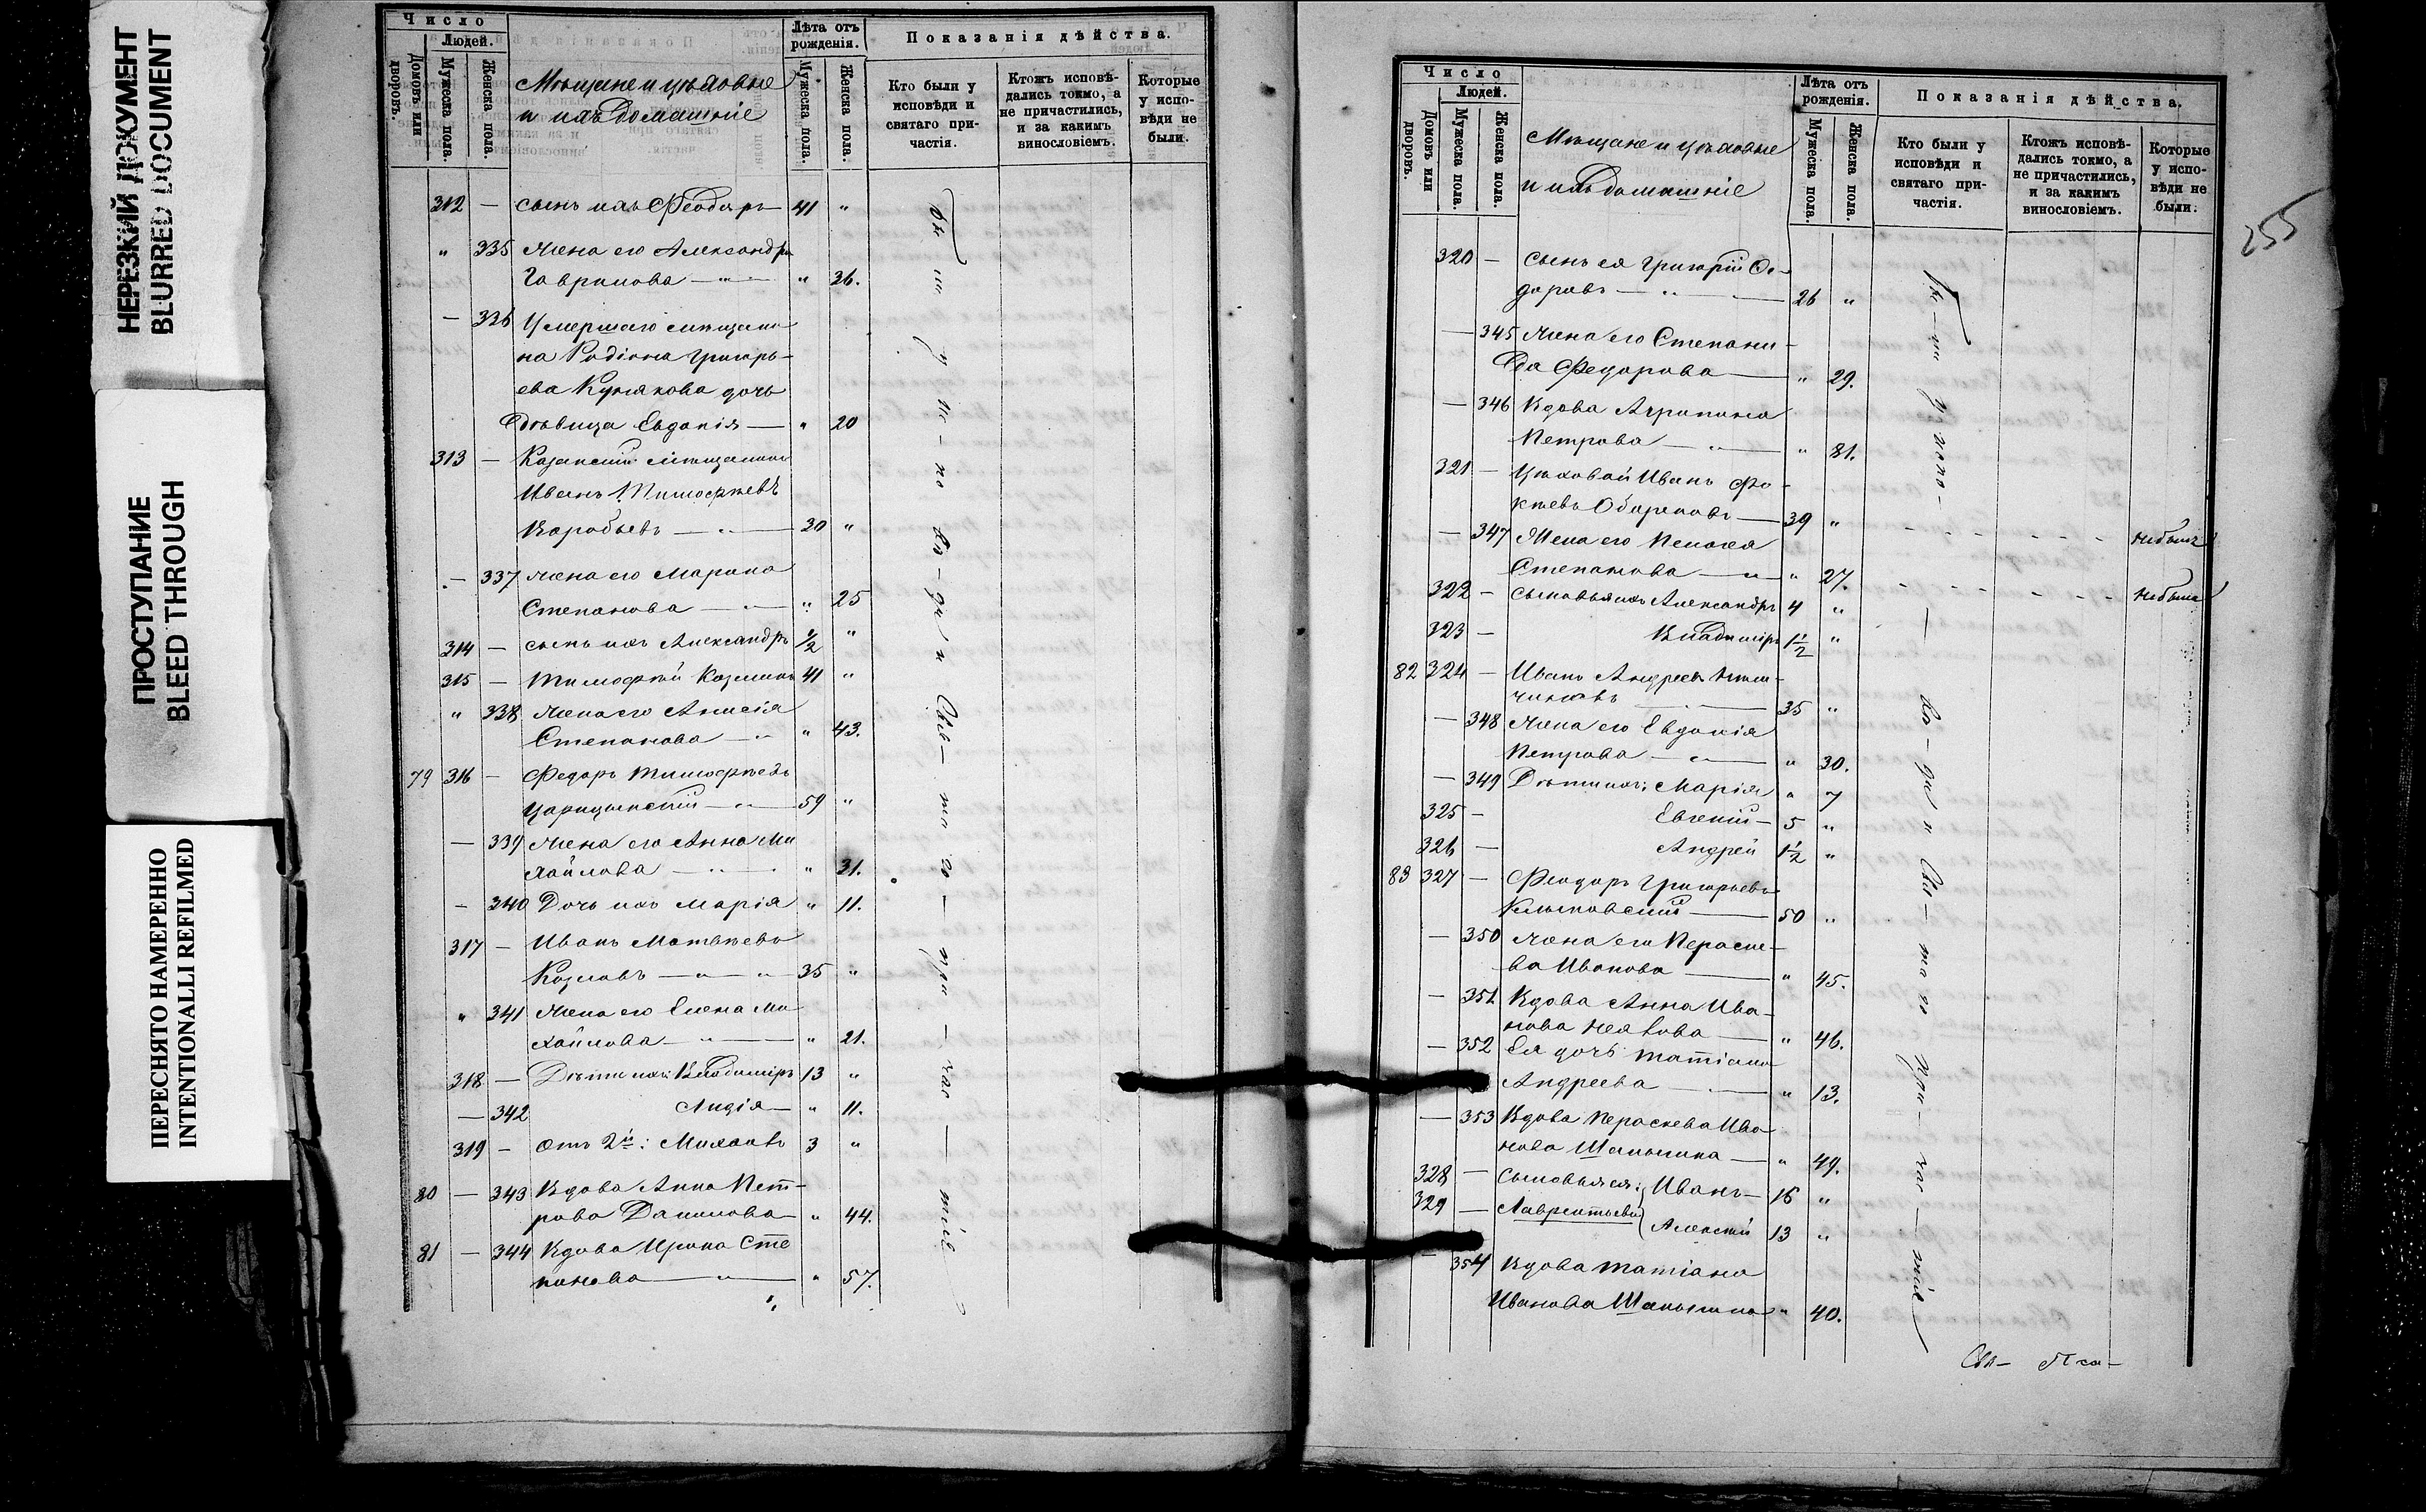 НЕРЕЗКИЙ ДОКУМЕНТ
BLURRED DOCUMENT
ПРОСТУПАНИЕ
BLEED THROUGH
ПЕРЕСНЯТО НАМЕРЕННО
INTENTIONALLI REFILMED
Число
Людей.
Домовъ или дворовъ.
Мужеска пола.
Женска пола.
Мѣщане и цѣховые
и ихъ домашніе
Лѣта отъ рожденія.
Мужеска пола.
Женска пола.
Показанія дѣйства.
Кто были у исповѣди и святаго причастія.
Ктожъ исповѣдались токмо, а не причастились, и за какимъ винословіемъ.
Которые у исповѣди не были.
312 — сынъ ихъ Феодоръ — 41 "
" 335 Жена его Александра
Гаврилова — " — " 26.
— 336 Умершаго мѣщани-
на Родіона Григорь-
ева Кунякова дочь
Дѣвица Евдокія — " 20
313 — Казанскій мѣщанинъ
Иванъ Тимофѣевъ
Воробьевъ — " — 30 "
— 337 Жена его Марина
Степанова — " — " 25
314 — сынъ ихъ Александръ 1/2 "
315 — Тимофѣй Козминъ 41 "
" 338 Жена его Анисія
Степанова — " " 43.
79 316 — Федоръ Тимофѣевъ
Царицынскій — " — 59 "
— 339 Жена его Анна Ми
хайлова — " — " 31.
— 340 Дочь ихъ Марія " 11.
317 — Иванъ Матвѣевъ
Козловъ — " — " 35 "
" 341 Жена его Елена Ми-
хайлова — " — " 21.
318 — Дѣти ихъ: Владиміръ 13 "
— 342 Лидія — " 11.
319 — Отъ 2й: Михаилъ 3 "
80 — 343 Вдова Анна Пет-
рова Данилова — " 44.
81 — 344 Вдова Ирина Сте
панова — " — " 57.
Бы — ли у ис — по — вѣ — ди и Свя — та го — при — час — тія
Число
Людей.
Домовъ или дворовъ.
Мужеска пола.
Женска пола.
Мѣщане и цѣховые
и ихъ домашніе
Лѣта отъ рожденія.
Мужеска пола.
Женска пола.
Показанія дѣйства.
Кто были у исповѣди и святаго причастія.
Ктожъ исповѣдались токмо, а не причастились, и за какимъ винословіемъ.
Которые у исповѣди не были.
255
320 — сынъ ея Григорій Ѳе-
доровъ — " — 26 "
— 345 Жена его Степани-
да Федорова — " 29.
— 346 Вдова Агрипина
Петрова — " — " 81.
321 — Цѣховой Иванъ Фо-
кѣевъ — 39 " не былъ
— 347 Жена его Пелагея
Степанова — " — " 27. не была
322 — сыновья ихъ Александръ 4 "
323 — Владиміръ 1 1/2 "
82 324 — Иванъ Андреевъ
35 "
— 348 Жена его Евдокія
Петрова — " — " 30.
— 349 Дѣти ихъ: Марія " 7
325 — Евгеній — 5 "
326 — Андрей 1 1/2 "
83 327 — Феодоръ Григорьевъ
50 "
— 350 Жена его Параске-
ва Иванова — " 45.
— 351 Вдова Анна Ива-
нова — " 46.
— 352 Ея дочь Татіана
Андреева — " 13.
— 353 Вдова Параскева Ива
нова Шапошна — " 49.
328 — Сыновья ея: Иванъ — 16 "
329 — Лаврентьевы Алексѣй 13 "
— 354 Вдова Татіана
Иванова " 40.
Бы — ли у испо — вѣ — ди и Свя — та го при — час — тія